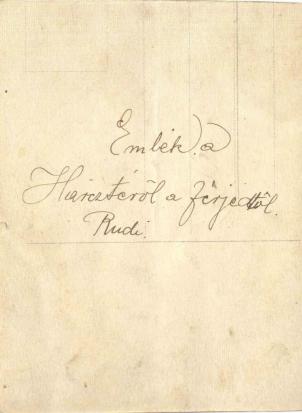 Emlék. a
Harcztéről a férjedtöl.
Rudi.